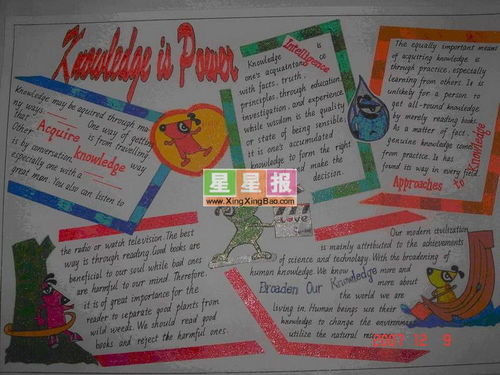 Knowledge is Power
Knowledge may be aquired through ma-
ny way. One way of getting
that is from travelling
Acquire knowledge
Other way
is by conversation,
especially one with a
great men. You also can listen to
the radio or watch television. The best
way is through reading. Good books are
beneficial to our soul while bad ones
are harmful to our mind. Therefore,
it is of great importance for the
reader to separate good plants from
wild weeds. We should read good
books and reject the harmful ones.
Intelligence
Knowledge is
one's acquaintance
with facts, truth,
principles, through education
investigation, and experience
while wisdom is the quality
or state of being sensible
it is one's accumulated
knowledge to form the right
and make the
decision.
The equally important means
of acquiring knowledge is
through practice, especially
learning from others. It is
unlikely for a person to
get all-round knowledge
by merely reading books.
As a matter of fact,
genuine knowledge comes
from practice. Is has
found its way in every field.
Approaches to Knowledge
星星报
www.XingXingBao.com
Love
Our modern civilization
is mainly attributed to the achievements
of science and technology. With the broadening of
human knowledge. We know more and
more about
Broaden Our Knowledge
the world we are
living in. Human beings use their
knowledge to change the environment
utilize the natural
2007 12 9